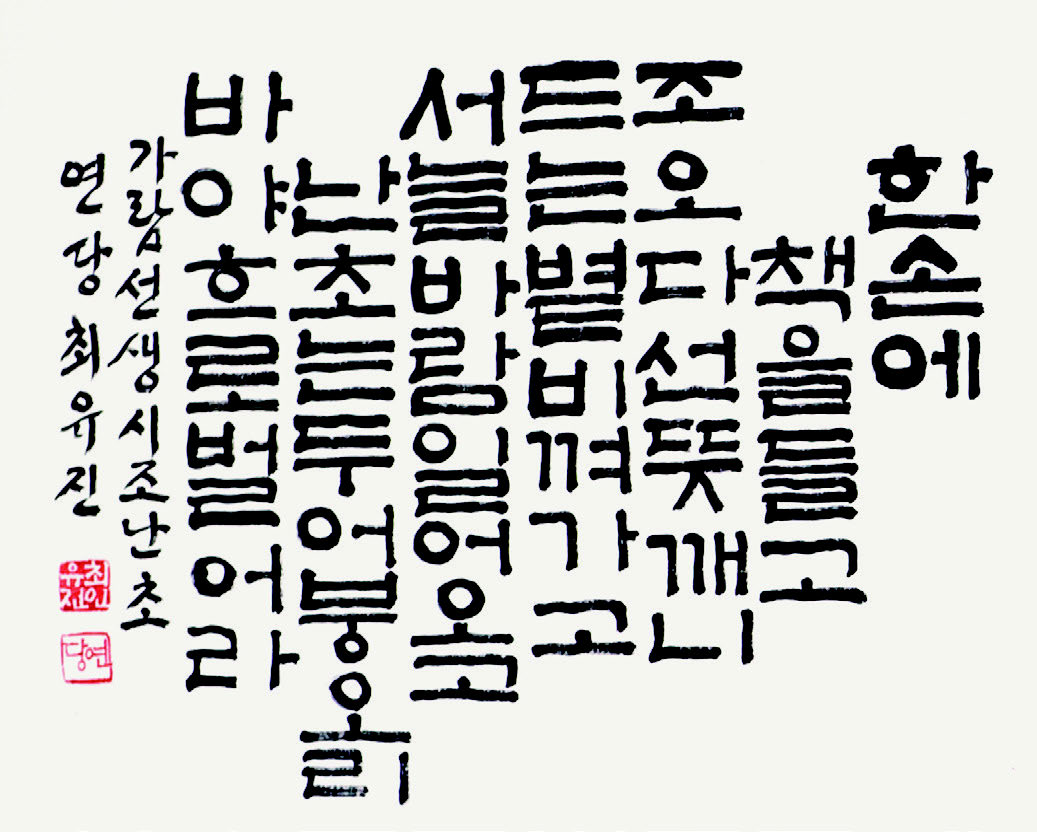 한손에
책을들고
조오다선뜻깨니
드는볕비껴가고
서늘바람일어오고
난초는두어붕오리
바야흐로벌어라
가람선생시조난초
연당 최유진
최인
유진
연당